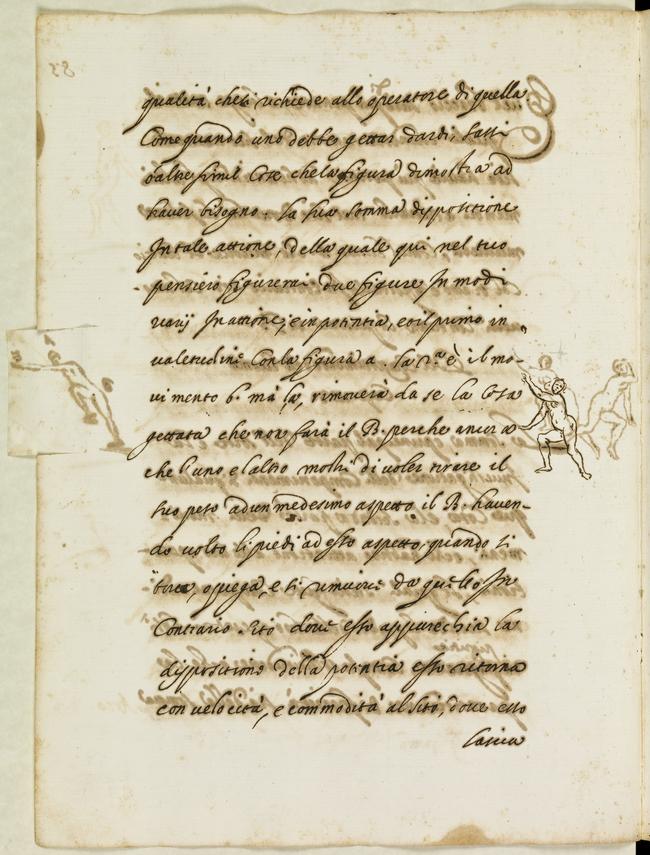 qualità che si richiede allo operatore di quella
Come quando uno debbe gettar dardi, sassi
o altre simil Cose che la figura dimostra ad
haver bisogno. la sua somma dispositione
In tale attione, della quale qui nel tuo
pensiero figurerai due figure In modi
varij In attione, e in potentia, et il primo in
valetudine. Con la figura a. la r.ª è il mo-
vimento b. mà la, rimoverà da se la Cosa
gettata che non farà il B. perche ancora
che l'uno e l'altro mostri di voler tirare il
suo peso ad un medesimo aspetto il B. haven-
do volto li piedi ad esso aspetto, quando si
torce, o piega, e si rimuove da quello In
Contrario sito dove esso apparechia la
dispositione della potentia esso ritorna
con velocità, e commodità al sito, dove esso
lascia